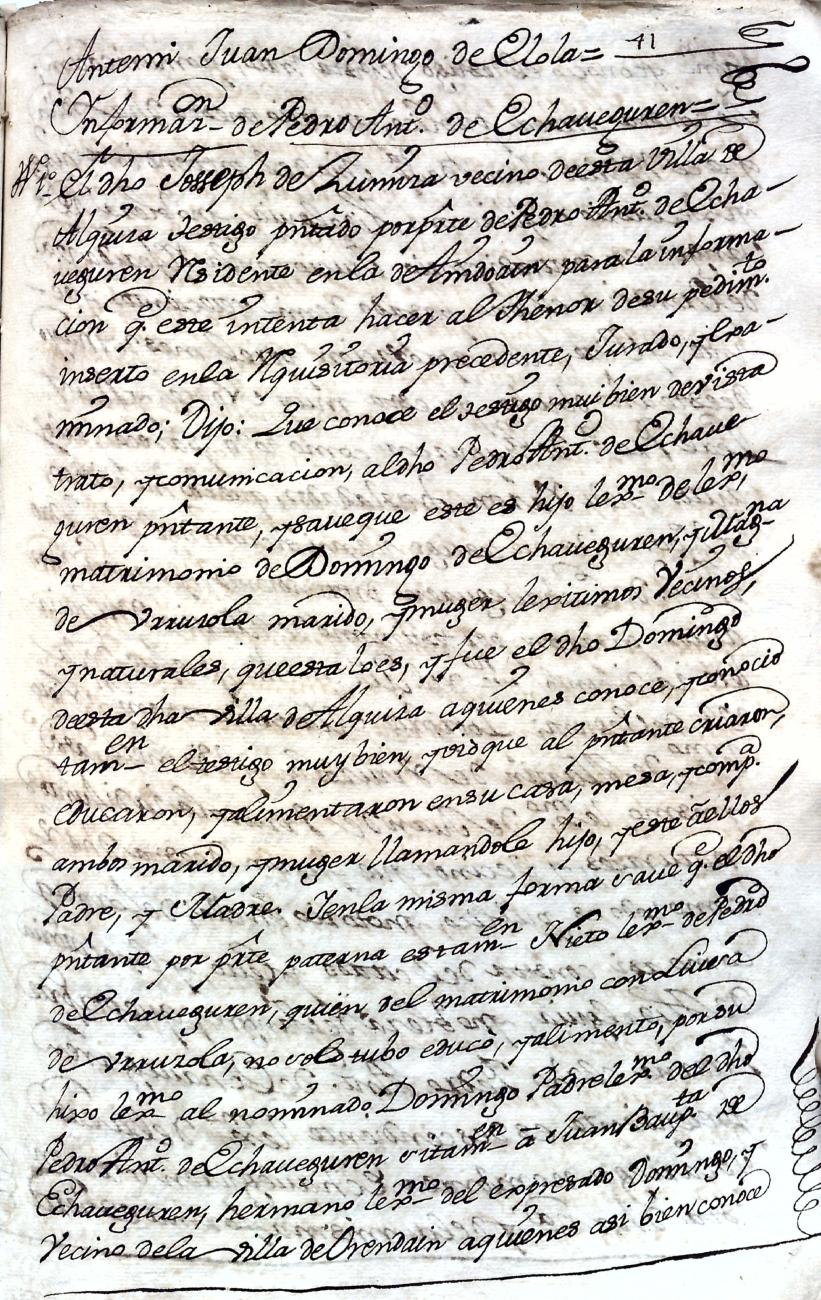 Antemi Juan Domingo de Elola= 41
Informaᵒⁿ de Pedro Antᵒ. de Echaueguren=
tº 1º El dho Joseph de Zumitza vecino deesta Villa de
Alquiza testigo pñtado por pᵃrte de Pedro Antᵒ. de Echa-
ueguren Rsidente en la de Amdoain para la informa-
cion q̃. este intenta hacer al thenor desu pedimᵗᵒ.
inserto en la Rquisitoria precedente, Jurado, y Exa-
minado; Dijo: Que conoce el testigo mui bien de vista
trato, y comunicacion, al dho Pedro Antᵒ. de Echaue-
guren pñtante, y saue que este es hijo lexᵐᵒ de lexᵐᵒ
matrimonio de Domingo de Echaueguren, y Magⁿᵃ
de Vrruzola marido, y muger lexitimos Vecinos,
y naturales, que esta lo es, y fue el dho Domingo
deesta dha Villa de Alquiza a quienes conoce, y conocio
tamᵉⁿ el testigo muy bien, y vio que al pñtante criaron,
educaron, y alimentaron en su casa, mesa, y compᵃ.
ambos marido, y muger llamandole hijo, y este a ellos
Padre, y Madre. Y en la misma forma saue q̃. el dho
pñtante por pᵃrte paterna es tamᵉⁿ Nieto lexᵐᵒ de Pedro
de Echaueguren, quien del matrimonio con Luisa
de Vrruzola, no solo tubo educò, y alimento, por su
hixo lexᵐᵒ al nominado Domingo Padre lexᵐᵒ del dho
Pedro Antᵒ. de Echaueguren si tamᵉⁿ a Juan Baupᵗᵃ de
Echaueguren, hermano lexᵐᵒ del expresado Domingo, y
Vecino de la Villa de Orendain a quienes asi bien conoce